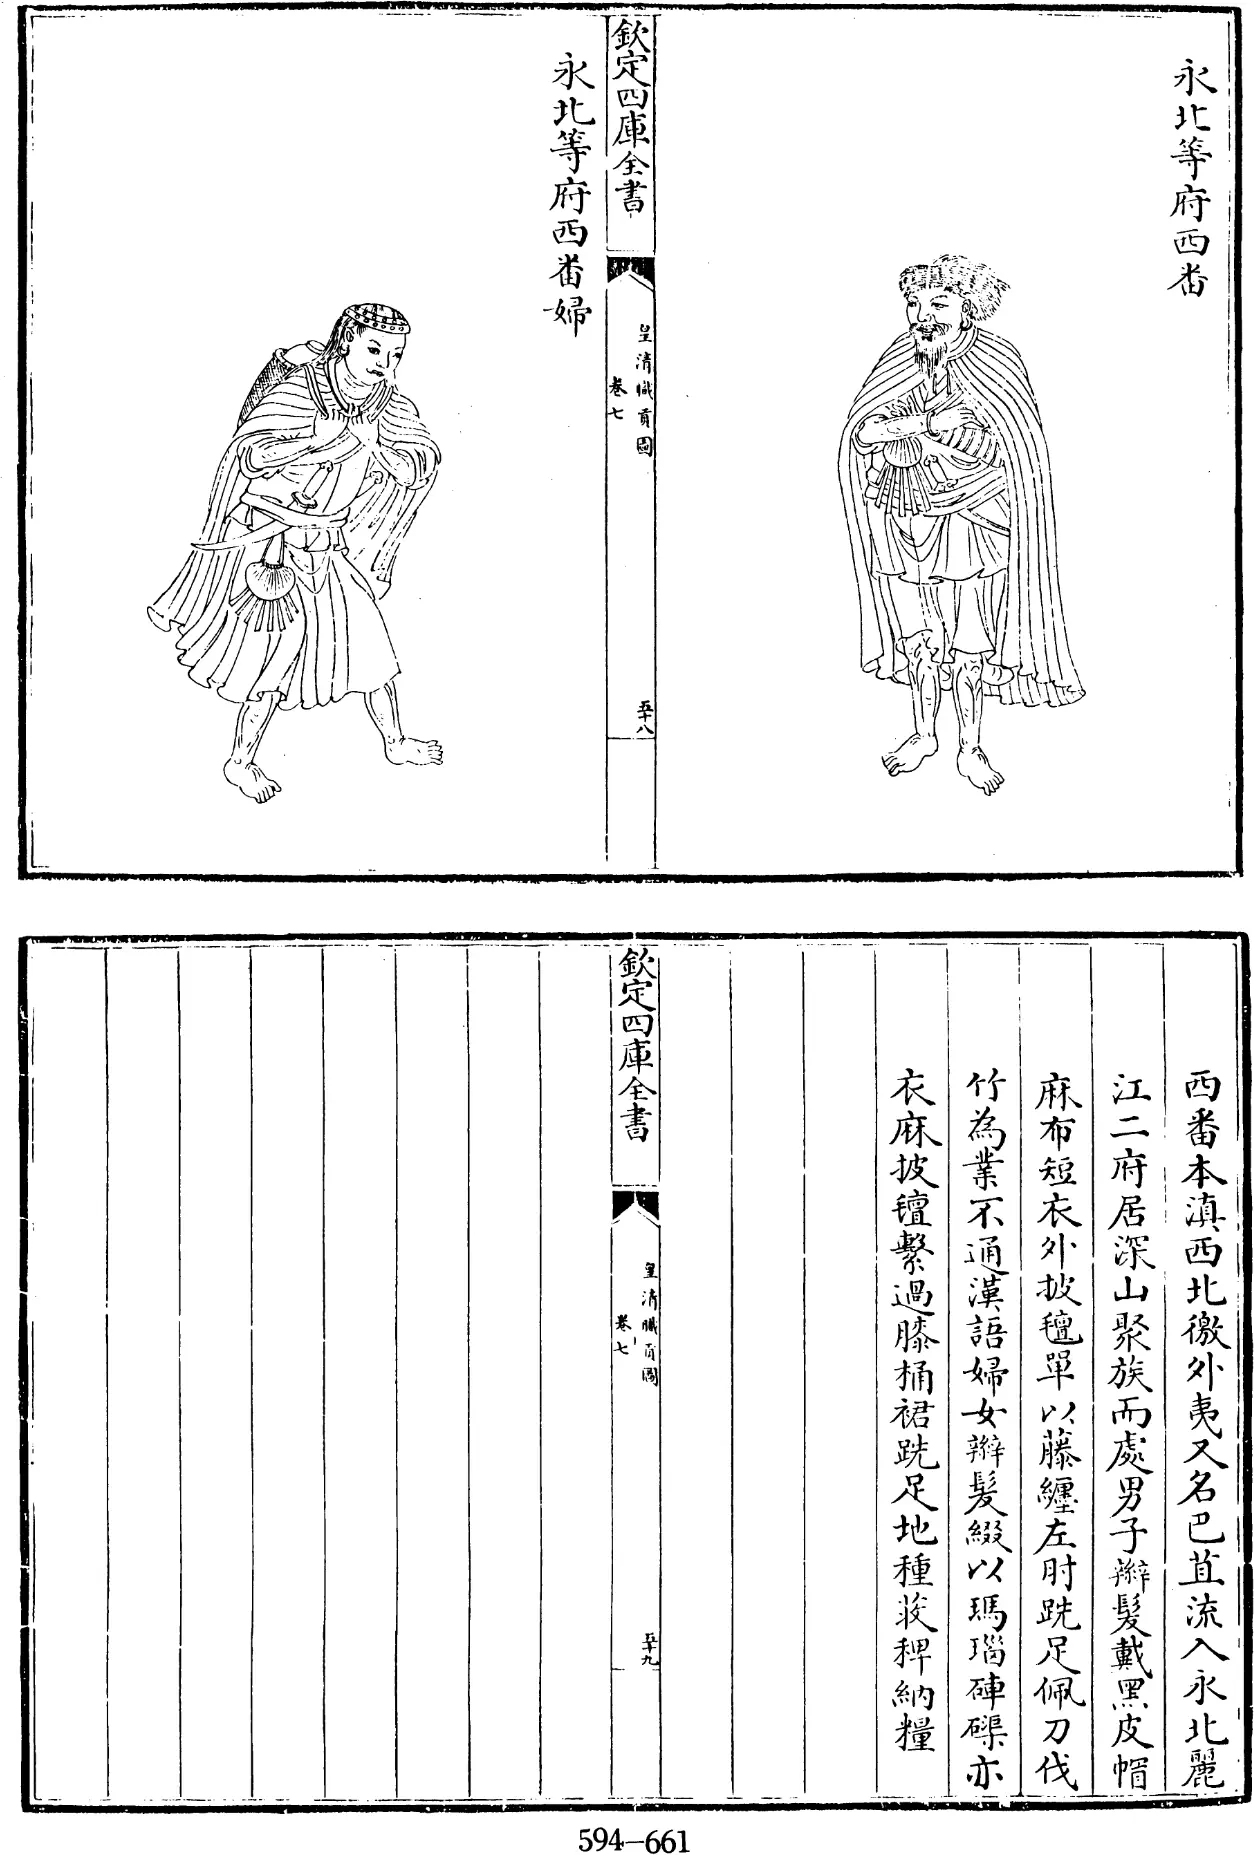 永北等府西番
欽定四庫全書
皇清職貢圖
卷七
五十八
永北等府西番婦
西番本滇西北徼外夷又名巴苴流入永北麗
江二府居深山聚族而處男子辮髮戴黑皮帽
麻布短衣外披氊單以藤纏左肘跣足佩刀伐
竹為業不通漢語婦女辮髮綴以瑪瑙硨磲亦
衣麻披氊繫過膝桶裙跣足地種荍稗納糧
欽定四庫全書
皇清職貢圖
卷七
五十九
594-661